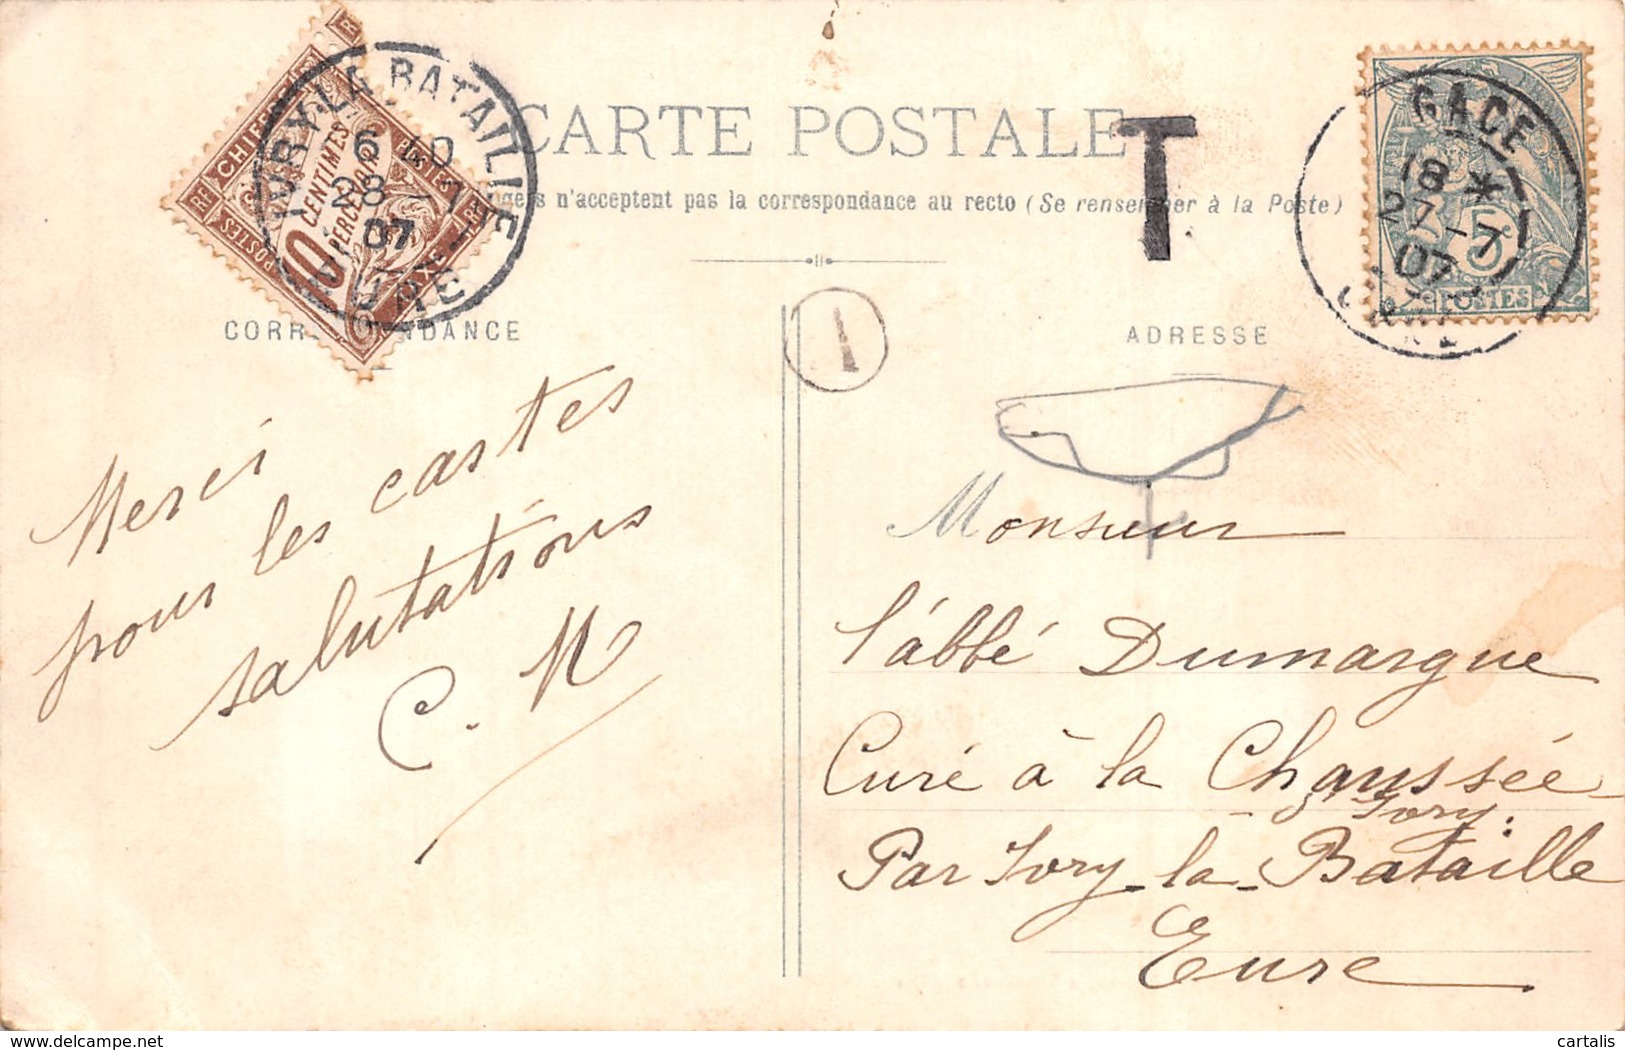 CARTE POSTALE
n'acceptent pas la correspondance au recto (Se renseigner à la Poste)
T
CORRESPONDANCE
ADRESSE
1
IVRY-LA-BATAILLE
6 40
28 -7
07
EURE
CHIFFRE
TAXE
POSTES
RF
10
CENTIMES
À PERCEVOIR
GACE
18 *
27-7
07
ORNE
5c
POSTES
Merci
pour les cartes
salutations
C. M
Monsieur
l'abbé Dumargue
Curé à la Chaussée
d'Ivry.
Par Ivry-la-Bataille
Eure
cartalis